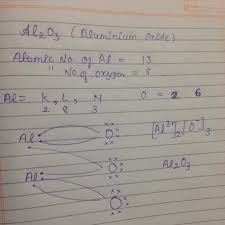 Al2O3 (Aluminium Oxide)
Atomic No of Al = 13
" No of oxygen = 8
Al = K, L, N O = 2 6
2 8 3
Al O
[Al3+]2 [O--]3
O
Al2O3
Al
O